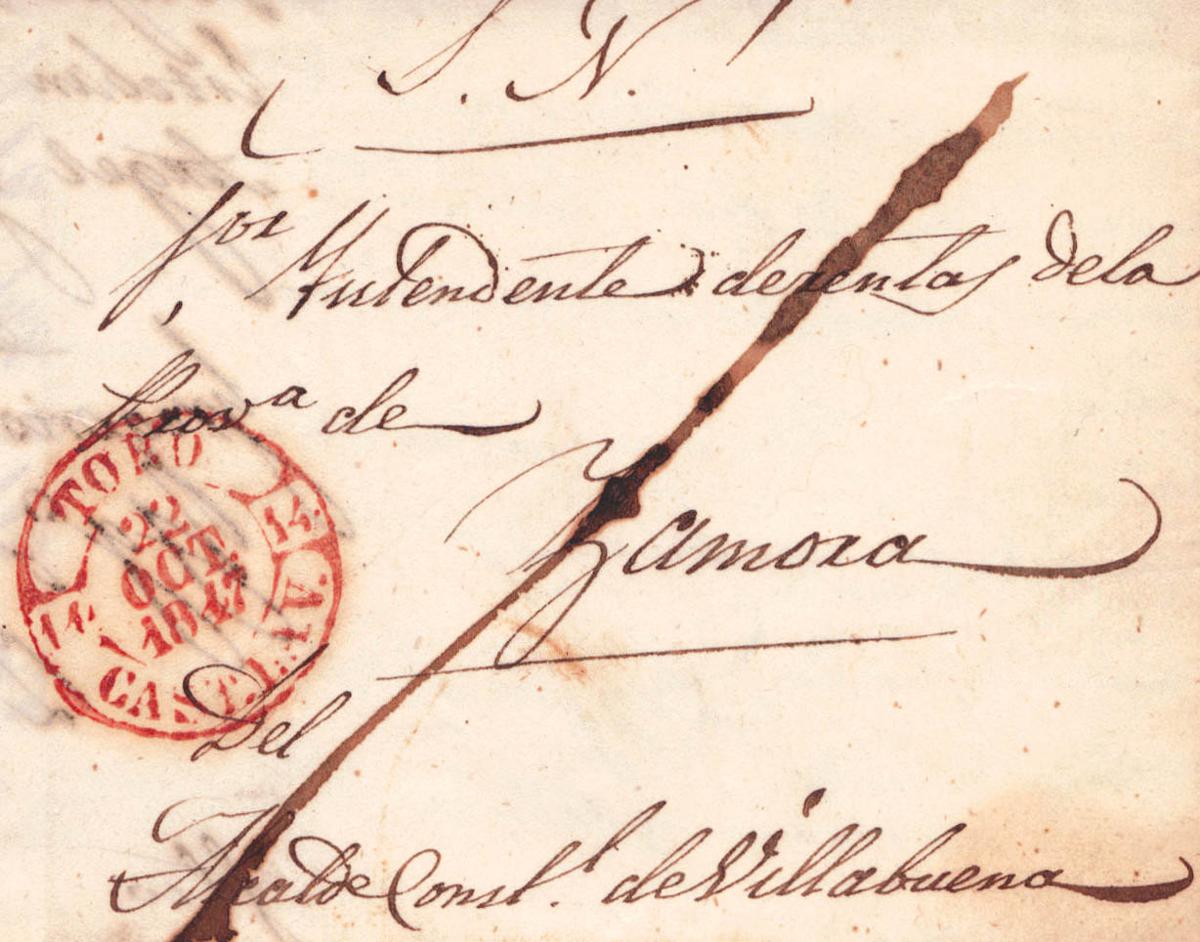 S. N.
Sor Yntendente de rentas de la
Prova de
Zamora
TORO
22
OCT.
1847
14
14
CAST.LA.V.
Del
Alcalde Constl. de Villabuena